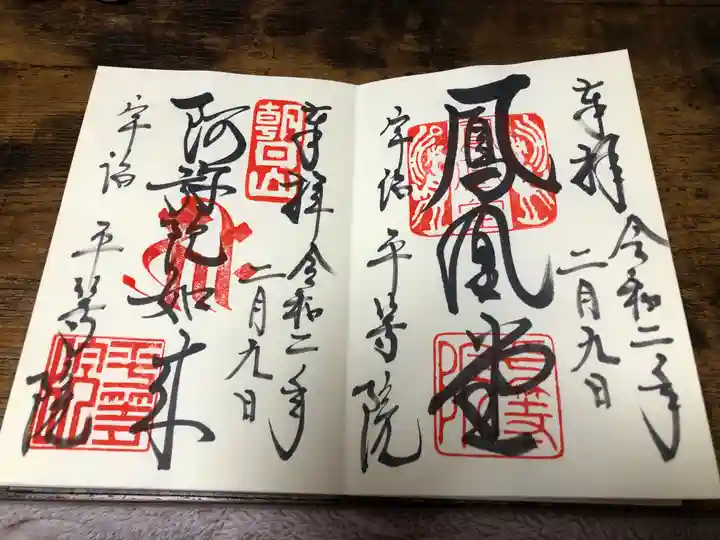 奉拝
令和二年
二月九日
鳳凰堂
宇治
平等院
奉拝
令和二年
二月九日
朝日山
阿弥陀如来
宇治
平等院